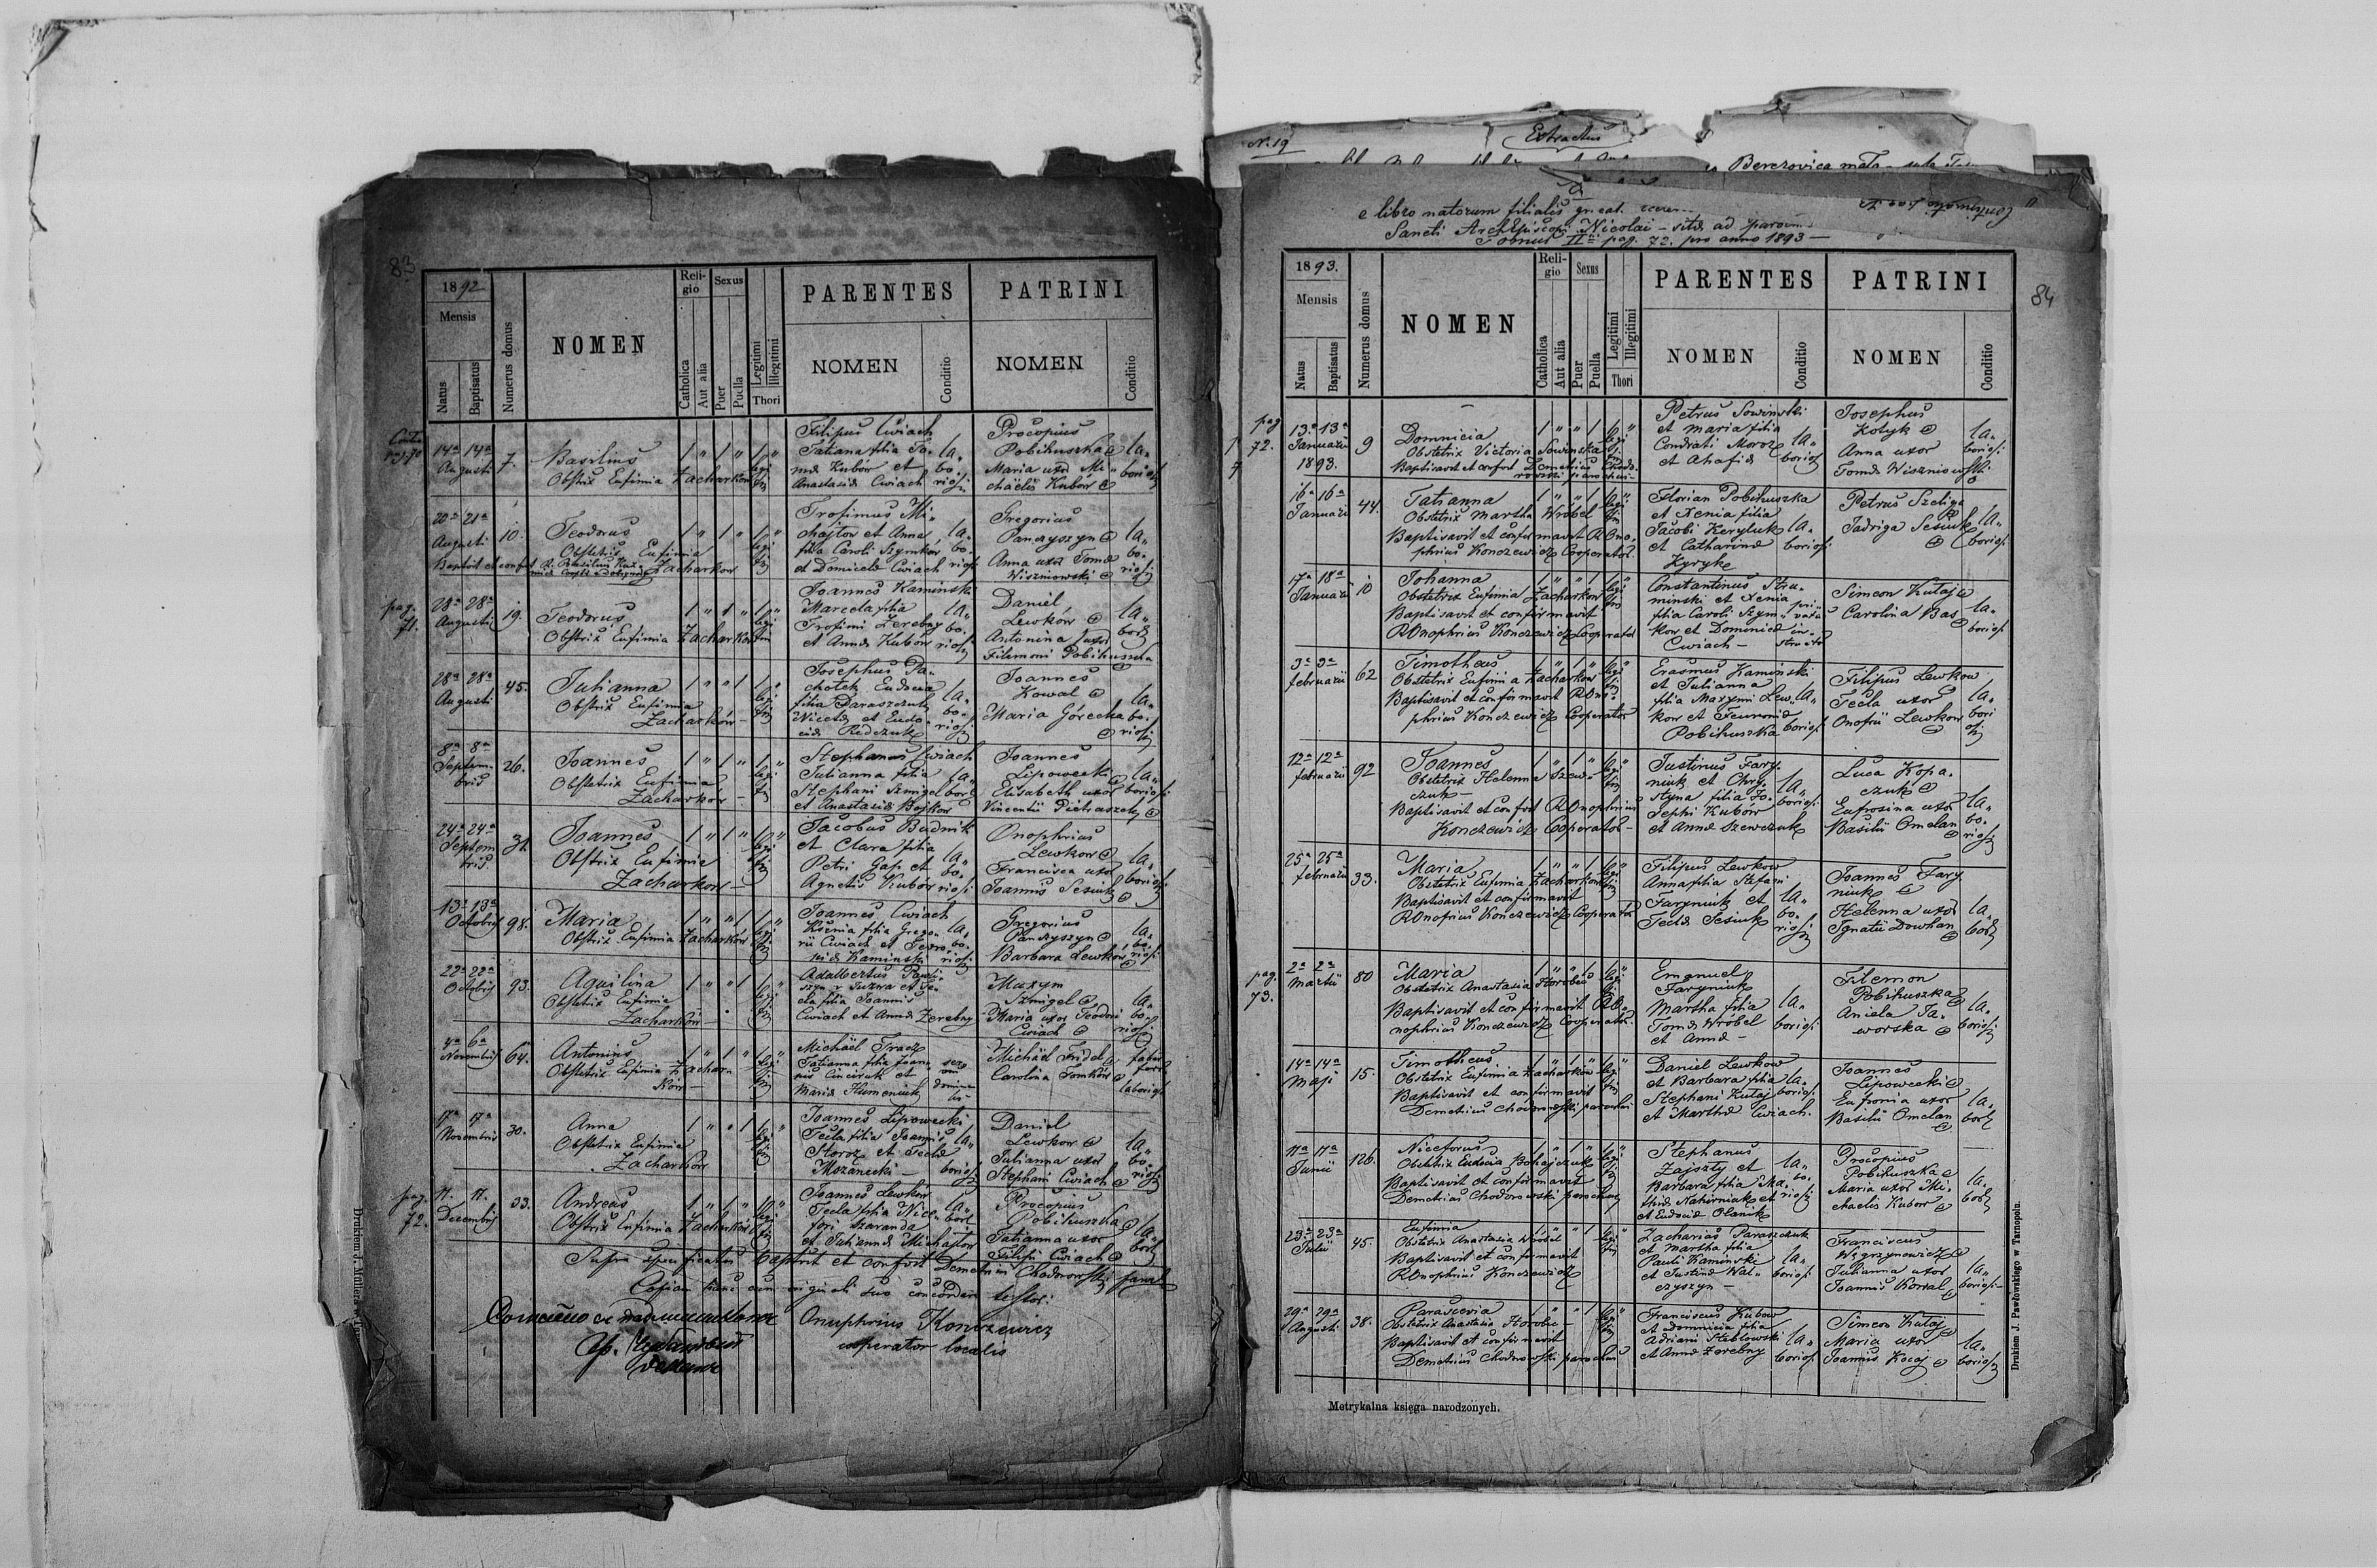 83
1892
Mensis
Natus
Baptisatus
Numerus domus
NOMEN
Religio
Catholica
Aut alia
Sexus
Puer
Puella
Legitimi
Illegitimi
Thori
PARENTES
NOMEN
Conditio
PATRINI
NOMEN
Conditio
14a 14a
Augusti
7.
Basilius
Obstrix Eufimia Zacharków
Filipus Cwiach
Tatiana filia To-
mæ Kubów et
Anastasiæ Cwiach
la-
bo-
riosi
Procopius
Pobihuszka
Maria uxor Mi-
chaëlis Kubów
la-
boriosi
20a 21a
Augusti
10.
Teodorus
Obstetrix Eufimia
Zacharków
Trofimus Mi-
chajlow et Anna
filia Caroli Szymków
et Domicelæ Cwiach
la-
bo-
riosi
Gregorius
Panczyszyn
Anna uxor Tomæ
Wiszniowski
la-
bo-
riosi
pag.
71.
28a 28a
Augusti
19.
Teodorus
Obstrix Eufimia Zacharków
Joannes Kaminski
Marcela filia
Trofimi Zerebny
et Annæ Kubów
la-
bo-
riosi
Daniel
Lewków
Antonina uxor
Filimoni Pobihuszka
la-
bori
28a 28a
Augusti
45.
Julianna
Obstrix Eufimia
Zacharków
Josephus Pa-
chotek Eudocia
filia Paraszczuk
Nicetæ et Eudo-
ciæ Redczuk
la-
bo-
riosi
Joannes
Kowal
Maria Górecka
la-
bo-
riosi
8a 8a
Septem-
bris
26.
Joannes
Obstetrix Eufimia
Zacharków
Stephanus Cwiach
Julianna filia
Stephani Szmigel
et Anastasiæ Bojkow
la-
Joannes
Lipowecki
Elisabeth uxor
Vincentii Pietraszek
la-
boriosi
24a 24a
Septem
bris
31.
Joannes
Obstrix Eufimia
Zacharkow
Jacobus Budnik
et Clara filia
Petri Gap et
Agnetis Kubów
la-
bo-
riosi
Onophrius
Lewkow
Francisca uxor
Joannis Sesiuk
la-
boriosi
13a 13a
Octobris
98.
Maria
Obstrix Eufimia Zacharków
Joannes Cwiach
Ksenia filia Grego-
rii Cwiach et Fewro-
niæ Kaminski
la-
bo-
riosi
Gregorius
Panczyszyn
Barbara Lewków
la-
bo-
riosi
22a 22a
Octobris
93.
Aquilina
Obstetrix Eufimia
Zacharków
cla filia Joannis
Cwiach et Annæ Zerebny
Maxym
Szmigel
Maria uxor Teodori
Cwiach
la-
bo-
riosi
4a 6a
Novembris
64.
Antonius
Obstetrix Eufimia Zachar-
ków
Michäel Tracz
Tatianna filia Joan-
nis Cinciruk et
Maria Humeniuk
Michäel Fridel
Carolina Tomków
faber
laboriosi
17a 17a
Novembris
30.
Anna
Obstetrix Eufimia
Zacharków
Joannes Lipowecki
Tecla filia Joannis
Storoz et Teclæ
Mszanecki
la-
boriosi
Daniel
Lewkow
Julianna uxor
Stephani Cwiach
la-
bo-
riosi
pag.
72.
11. 11.
Decembris
33.
Andreas
Obstrix Eufimia Zacharków
Joannes Lewków
Tecla filia Nice-
fori Szaranda
et Juliannæ Michajlow
la-
Procopius
Pobihuszka
Tatianna uxor
Filipi Cwiach
la-
Supra specificatos baptisit et confirt Demetrius Chodorowski
Copiam hanc cum originali suo concordare testor.
Onuphrius Konczewicz
cooperator localis
Drukiem J. Mullera
N. 19
Extractus
Berezovica mała
e libro natorum filialis gr. cat.
Sancti Archiepiscopi Nicolai - sitæ ad
Tomus II pag. 72. pro anno 1893 -
84
1893.
Mensis
Natus
Baptisatus
Numerus domus
NOMEN
Religio
Catholica
Aut alia
Sexus
Puer
Puella
Legitimi
Illegitimi
Thori
PARENTES
NOMEN
Conditio
PATRINI
NOMEN
Conditio
pag
72.
13a 13a
Januarii
1893.
9
Domnicia
Obstetrix Victoria Sowinska
Baptisavit et confirt Demetrius Chodo-
rowski parochus
Petrus Sowinski
et Maria filia
Condrati Moroz
et Ahafiæ
la-
boriosi
Josephus
Kotyk
Anna uxor
Tomæ Wiszniowski
la-
boriosi
16a 16a
Januarii
44.
Tatianna
Obstetrix Martha Wrobel
Baptisavit et confirmavit R Ono-
phrius Konczewicz Cooperator
Florian Pobihuszka
et Xenia filia
Jacobi Keryluk
et Catharinæ
Kyryk
la-
boriosi
Petrus Szeliga
Jadviga Sesiuk
la-
boriosi
17a 18a
Januarii
10
Johanna
Obstetrix Eufimia Zacharkow
Baptisavit et confirmavit
ROnophrius Konczewicz Cooperator
Constantinus Stru-
minski et Xenia
filia Caroli Szym-
kow et Dominicæ
Cwiach -
Simeon Kutaj
Carolina Bas
la-
boriosi
3a 3a
februarii
62
Timotheus
Obstetrix Eufimia Zacharkow
Baptisavit et confirmavit R Ono-
phrius Konczewicz Cooperator
Erasmus Kaminski
et Julianna
filia Maxymi Lew-
kow et Fewroniæ
Pobihuszka
la-
boriosi
Filipus Lewkow
Tecla uxor
Onofrii Lewkow
la-
bori
osi
12a 12a
februarii
92
Joannes
Obstetrix Halenna Szew-
czuk -
Baptisavit et confirt ROnophrius
Konczewicz Cooperator -
Justinus Fary-
niuk et Chry-
styna filia Jo-
sephi Kubow
et Annæ Szewczuk
la-
boriosi
Luca Kopa-
czuk
Eufrosina uxor
Basilii Omelan
la-
bo-
riosi
25a 25a
februarii
33.
Maria
Obstetrix Eufimia Zacharkow
Baptisavit et confirmavit
ROnofrius Konczewicz Cooperator
Filipus Lewkow
Anna filia Stefani
Faryniuk et
Teclæ Sesiuk
la-
bo-
riosi
Joannes Fary
niuk
Helenna uxor
Ignatii Dowhan
la-
pag.
73.
2a 2a
Martii
80
Maria
Obstetrix Anastasia Horobec
Baptisavit et confirmavit RO-
nophrius Konczewicz Cooperator
Emanuel
Faryniuk
Martha filia
Tomæ Wrobel
et Annæ -
la-
boriosi
Filemon
Pobihuszka
Aniela Ja-
worska
la-
boriosi
14a 14a
Maji
15.
Timotheus
Obstetrix Eufimia Zacharkow
Baptisavit et confirmavit
Demetrius Chodorowski parochus
Daniel Lewkow
et Barbara filia
Stephani Kutaj
et Marthæ Cwiach.
la-
boriosi
Joannes
Lipowecki
Eufronia uxor
Basilii Omelan
la-
11a 11a
Junii
126.
Niceforus
Obstetrix Eudocia Bohajczuk
Baptisavit et confirmavit
Demetrius Chodorowski parochus
Stephanus
Zajszty et
Barbara filia Ma-
thiæ Nahirniak et
et Eudociæ Olanik
la-
bo-
riosi
Procopius
Pobihuszka
Maria uxor Mi-
chaelis Kubow
la-
23a 23a
Julii
45.
Eufimia
Obstetrix Anastasia Wrobel
Baptisavit et confirmavit
ROnophrius Konczewicz
Zacharias Paraszczuk
et Martha filia
Pauli Kaminski
et Justinæ Wal-
czyszyn -
la-
boriosi
Franciscus
Węgrzynowicz
Julianna uxor
Joannis Kowal
la-
boriosi
29a 29a
Augusti
38.
Parascevia
Obstetrix Anastasia Horobec
Baptisavit et confirmavit
Demetrius Chodorowski parochus
Franciscus Kubow
et Domnicia filia
Adriani Steblowski
et Annæ Zerebny
la-
boriosi
Simeon Kutaj
Maria uxor
Joannis Kocaj
la-
boriosi
Metrykalna księga narodzonych.
Drukiem J. Pawłowskiego w Tarnopolu.